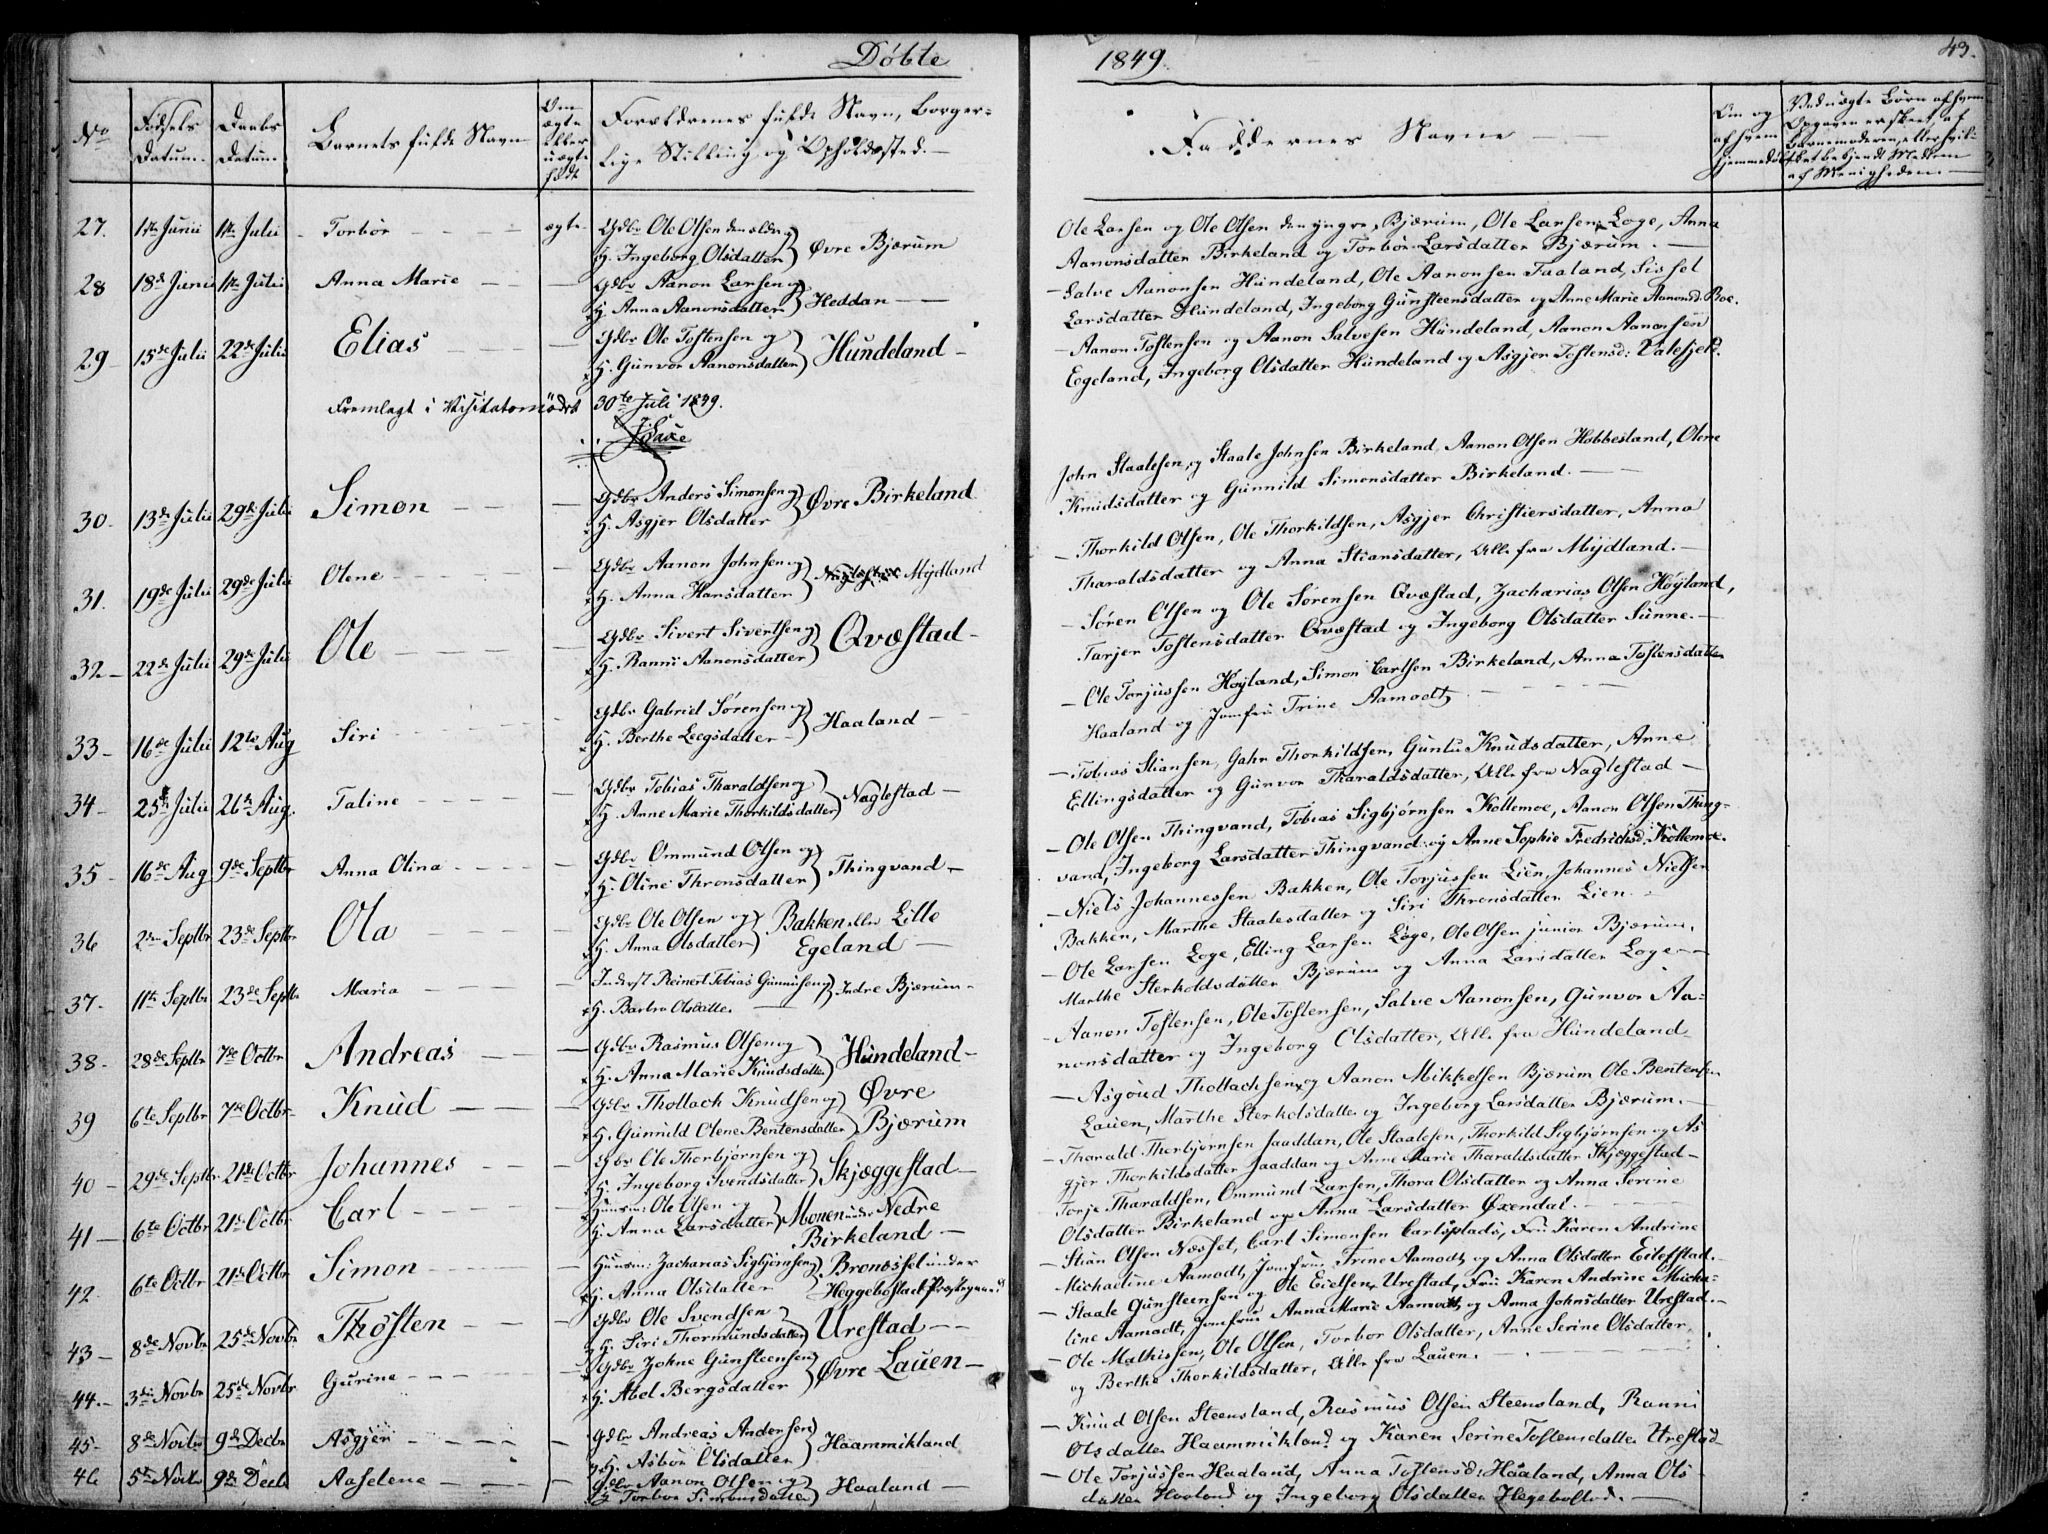 Døbte
1849
43.
No
Fødsels Datum.
Daabs Datum.
Barnets fulde Navn
Om ægte eller uægte født
Forældrenes fulde Navn, Borger-
lige Stilling og Opholdssted.
Faddernes Navne
Om og af hvem hjemmedøbt
27. 1ste Junii 1ste Julii Torbor ægte Gdbr Ole Olsen den ældre og
H. Ingeborg Olsdatter } Øvre Bjærum
Ole Larsen og Ole Olsen den yngre, Bjærum, Ole Larsen Loge, Anna
Aanonsdatter Birkeland og Torbor Larsdatter Bjærum.
28 18de Junii 1ste Julii Anna Marie — Gdbr Aanon Larsen og
H. Anna Aanonsdatter } Heddan
Salve Aanonsen Hundeland, Ole Aanonsen Faaland, Sissel
Larsdatter Hundeland, Ingeborg Gunsteensdatter og Anne Marie Aanonsd. Boe.
29 15de Julii 22de Julii Elias — Gdbr Ole Tostensen og
H. Gunvor Aanonsdatter } Hundeland
Aanon Tostensen og Aanon Salvesen Hundeland, Aanon Aanonsen
Eegeland, Ingeborg Olsdatter Hundeland og Asgjer Tostensd: Valefjeld.
Fremlagt i Visitatsmødet 30te Juli 1849.
30 13de Julii 29de Julii Simon — Gdbr Anders Simonsen og
H. Asgjer Olsdatter } Øvre Birkeland
John Staalesen og Staale Johnsen Birkeland, Aanon Olsen Hobbesland, Olene
Knudsdatter og Gunnild Simonsdatter Birkeland.
31. 19de Julii 29de Julii Olene — Gdbr Aanon Johnsen og
H. Anna Hansdatter } Mydland
Thorkild Olsen, Ole Thorkildsen, Asgjer Christiersdatter, Anna
Tharaldsdatter og Anna Stiansdatter, Alle fra Mydland.
32 22de Julii 29de Julii Ole — Gdbr Sivert Sivertsen og
H. Ranni Aanonsdatter } Qvæstad
Søren Olsen og Ole Sørensen Qvæstad, Zacharias Olsen Høyland,
Tarjer Tostensdatter Qvæstad og Ingeborg Olsdatter Sunne.
33 16de Julii 12te Aug Siri — Gdbr Gabriel Sørensen og
H. Berthe Leegsdatter } Haaland
Ole Torjussen Høyland, Simon Carlsen Birkeland, Anna Tostensdatter
Haaland og Jomfru Trine Aamodt
34 25de Julii 26te Aug. Taline — Gdbr Tobias Tharaldsen og
H. Anne Marie Thorkildsdatter } Naglestad
Tobias Stiansen, Gahr Thorkildsen, Guntu Knudsdatter, Anne
Ellingsdatter og Gunvor Tharaldsdatter, Alle fra Naglestad
35 16de Aug 9de Septbr Anna Olina — Gdbr Ommund Olsen og
H. Oline Thronsdatter } Thingvand
Ole Olsen Thingvand, Tobias Sigbjørnsen Kollemoe, Aanon Olsen Thing-
vand, Ingeborg Larsdatter Thingvand og Anne Sophie Fredrichsd: Kollemoe.
36 2den Septbr 23de Septbr Ola — Gdbr Ole Olsen og
H. Anna Olsdatter } Bakken eller Lille Egeland
Niels Johannessen Bakken, Ole Torjussen Lien, Johannes Nielsen
Bakken, Marthe Staalesdatter og Siri Thronsdatter Lien.
37. 11te Septbr 23de Septbr Maria — Inderst Reinert Tobias Gunnufsen og
H. Barbro Olsdatter } Indre Bjærum
Ole Larsen Loge, Elling Larsen Loge, Ole Olsen junior Bjærum,
Marthe Sterkoldsdatter Bjærum og Anna Larsdatter Loge
38. 28de Septbr 7de Octbr Andreas — Gdbr Rasmus Olsen og
H. Anna Marie Knudsdatter } Hundeland
Aanon Tostensen, Ole Tostensen, Salve Aanonsen, Gunvor Aa-
nonsdatter og Ingeborg Olsdatter, Alle fra Hundeland
39 6te Septbr 7de Octbr Knud — Gdbr Thollach Knudsen og
H. Gunnild Olene Bentensdatter } Øvre Bjærum
Asgoud Thollachsen og Aanon Mikkelsen Bjærum, Ole Bentensen
Lauen, Marthe Sterkolsdatter og Ingeborg Larsdatter Bjærum.
40 29de Septbr 21de Octbr Johannes — Gdbr Ole Thorbjørnsen og
H. Ingeborg Svendsdatter } Skjæggestad
Tharald Thorbjørnsen Jaaddan, Ole Staalesen, Thorkild Sigbjørnsen og As
gjer Thorkildsdatter Jaaddan og Anne Marie Tharaldsdatter Skjæggestad
41 6te Octbr 21de Octbr Carl — Huusm: Ole Olsen og
H. Anna Larsdatter } Monen under Nedre Birkeland
Torje Tharaldsen, Ommund Larsen, Thora Olsdatter og Anna Serine
Olsdatter Birkeland og Anna Larsdatter Øxendal.
42. 6te Octbr 21de Octbr Simon — Huusm: Zacharias Sigbjørnsen og
H. Anna Olsdatter } Bronossel under Heggebostad Præstegaard
Stian Olsen Næsset, Carl Simonsen Carlsplads, Fru Karen Andrine
Michaeline Aamodt, Jomfru Trine Aamodt og Anna Olsdatter Eilefstad.
43 8de Novbr 25de Novbr Thosten — Gdbr Ole Svendsen
H. Siri Thormundsdatter } Urestad
Staale Gunsteensen og Ole Eielsen Urestad, Fru Karen Andrine Micha-
line Aamodt, Jomfru Anna Marie Aamodt og Anna Johnsdatter Urestad.
44. 3die Novbr 25de Novbr Gurine — Gdbr Johne Gunsteensen
H. Abel Bergsdatter } Øvre Lauen
Ole Mathissen, Ole Olsen, Torbor Olsdatter, Anne Serine Olsdatter
og Berthe Thorkildsdatter, Alle fra Lauen.
45 8de Novbr 9de Decbr Asgjer — Gdbr Andreas Andersen
H. Asbor Olsdatter } Haammikland
Knud Olsen Steensland, Rasmus Olsen Steensland, Ranni
Olsdatter Haammikland og Karen Serine Tostensdatter Urestad
46 5te Novbr 9de Decbr Aaselene — Gdbr Aanon Olsen og
H. Torbor Simonsdatter } Haaland
Ole Torjussen Haaland, Anna Tostensd: Haaland, Anna Ols
datter Haaland og Ingeborg Olsdatter Hegebostad.